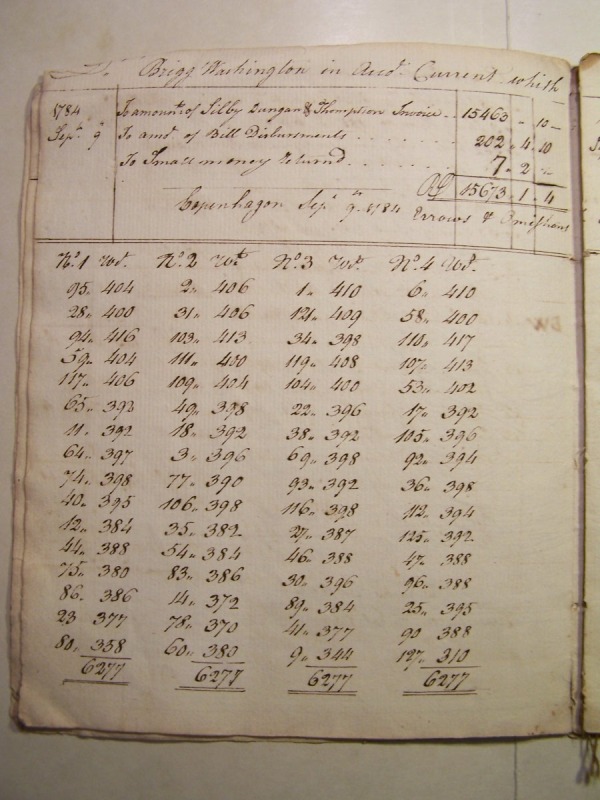 Dr. Brigg Washington in Acct. Current with
1784 To amount of Selby Dungan & Thompson Invoice .. 15463 " - 10 -
Sept. 9 To amt. of Bill Disbursments . . . . . . . 202 . 4 . 10
To Small money returnd . . . . . . 7 . 2 . -
15673 . 1 . 4
Copenhagen Sept. 9. 1784 Errors &
No. 1 Wt. No. 2 Wt. No. 3 Wt. No. 4 Wt.
95 " 404 2 " 406 1 " 410 6 " 410
28 " 400 31 " 406 121 " 409 58 " 400
94 " 416 103 " 413 34 " 398 110 " 417
59 " 404 111 " 400 119 " 408 107 " 413
117 " 406 109 " 404 104 " 400 53 " 402
65 " 392 49 " 398 22 " 396 17 " 392
11 " 392 18 " 392 38 " 392 105 " 396
64 " 397 3 " 396 69 " 398 92 " 394
74 " 398 77 " 390 93 " 392 36 " 398
40 " 395 106 " 398 116 " 398 112 " 394
12 " 384 35 " 382 27 " 387 125 " 392
44 " 388 54 " 384 46 " 388 47 " 388
75 " 380 83 " 386 30 " 396 96 " 388
86 " 386 14 " 372 89 " 384 25 " 395
23 377 78 " 370 41 " 377 90 388
80 " 358 60 " 380 9 " 344 127 " 310
6277 6277 6277 6277